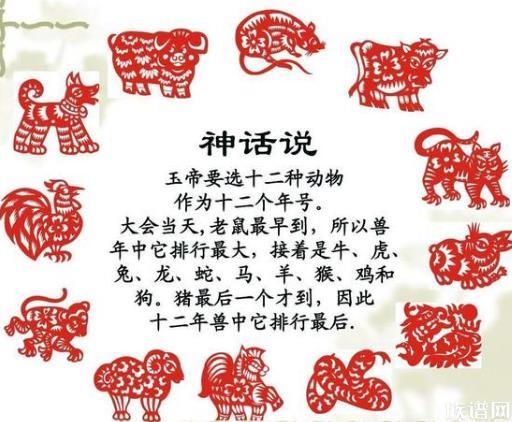 神话说
玉帝要选十二种动物
作为十二个年号。
大会当天,老鼠最早到，所以兽
年中它排行最大，接着是牛、虎、
兔、龙、蛇、马、羊、猴、鸡和
狗。猪最后一个才到，因此
十二年兽中它排行最后.
族谱网